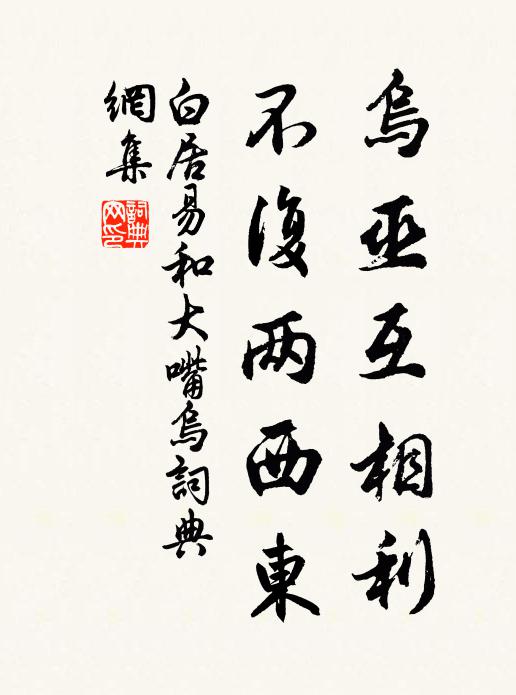 烏巫互相利
不復两西東
白居易和大嘴烏詞典
網集
詞典網印